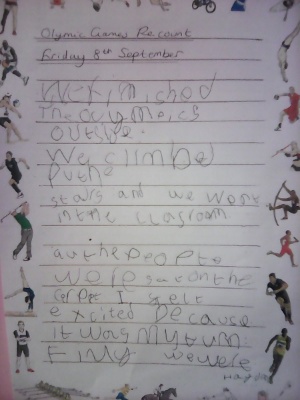 Olymic Games Recount
Friday 8th September
We finished
the olymeics
outside.
We climbed
up the
stairs and we went
in the clasroom.
all the people
were sat on the
carpet I felt
excited because
it was my turn.
we were